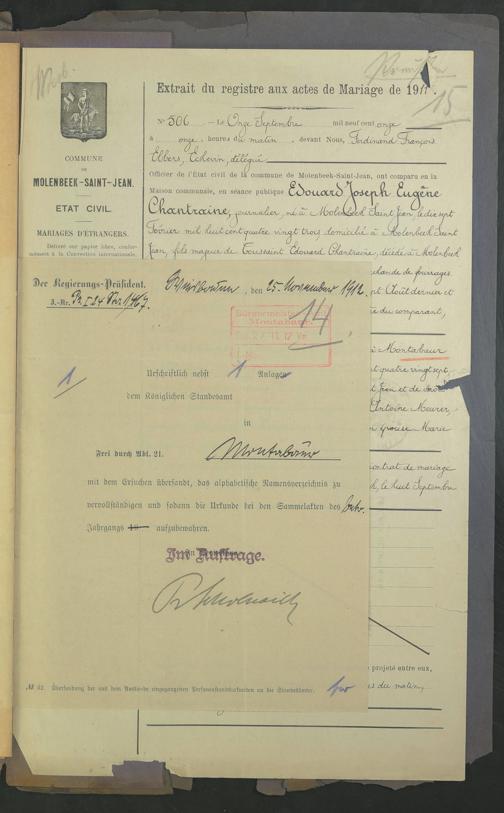 Extrait du registre aux actes de Mariage de 191
15
COMMUNE
DE
MOLENBEEK-SAINT-JEAN.
ETAT CIVIL.
MARIAGES D'ÉTRANGERS.
Délivré sur papier libre, confor-
mément à la Convention internationale.
N° 506 — Le Onze Septembre mil neuf cent onze
à onze heures du matin, devant Nous, Ferdinand François
Elbers, Echevin, délégué
Officier de l'état civil de la commune de Molenbeek-Saint-Jean, ont comparu en la
Maison communale, en séance publique Edouard Joseph Eugène
Chantraine, journalier, né à Molenbeek Saint Jean, le dix sept
Février mil huit cent quatre vingt trois, domicilié à Molenbeek Saint
Jean, fils majeur de Toussaint Edouard Chantraine, décédé à Molenbeek
chande de fourrages
pt Août dernier et
du comparant,
à Montabaur
t quatre vingt sept
t Jean et de
Antoine Meurer,
épouse Marie
contrat de mariage
le huit Septembre
projeté entre eux,
es du matin,
Der Regierungs-Präsident.
J.-Nr.
, den 25. November 1912.
14
Montabaur
1
Urschriftlich nebst 1 Anlage
dem Königlichen Standesamt
in
Frei durch Abl. 21.
Montabaur
mit dem Ersuchen übersandt, das alphabetische Namensverzeichnis zu
vervollständigen und sodann die Urkunde bei den Sammelakten des betr.
Jahrgangs 19 aufzubewahren.
Im Auftrage.
№ 62. Übersendung der aus dem Auslande eingegangenen Personenstandsurkunden an die Standesämter.